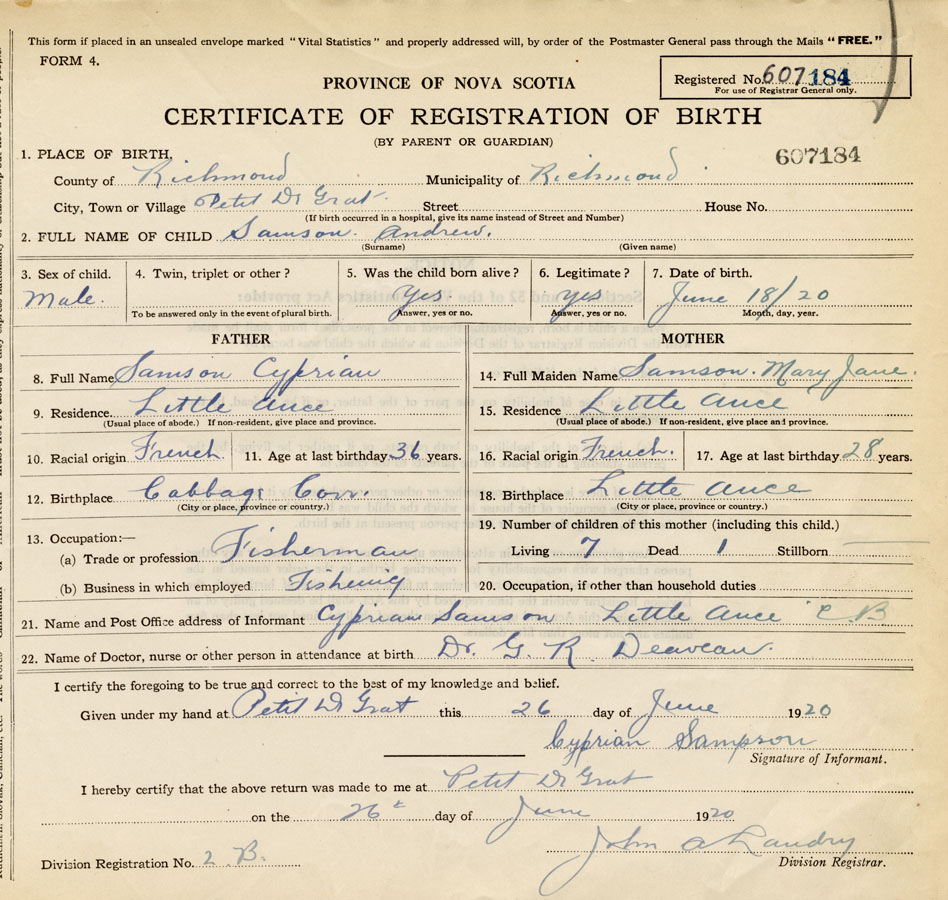 This form if placed in an unsealed envelope marked "Vital Statistics" and properly addressed will, by order of the Postmaster General pass through the Mails "FREE."
FORM 4.
PROVINCE OF NOVA SCOTIA
Registered No. 607184
For use of Registrar General only.
CERTIFICATE OF REGISTRATION OF BIRTH
(BY PARENT OR GUARDIAN)
607184
1. PLACE OF BIRTH.
County of Richmond Municipality of Richmond
City, Town or Village Petit D Grat Street House No.
(If birth occurred in a hospital, give its name instead of Street and Number)
2. FULL NAME OF CHILD Samson Andrew.
(Surname) (Given name)
3. Sex of child. 4. Twin, triplet or other? 5. Was the child born alive? 6. Legitimate? 7. Date of birth.
Male. Yes. yes June 18/20
To be answered only in the event of plural birth. Answer, yes or no. Answer, yes or no. Month, day, year.
FATHER MOTHER
8. Full Name Samson Cyprian 14. Full Maiden Name Samson. Mary Jane.
9. Residence. Little Ance 15. Residence Little Ance
(Usual place of abode.) If non-resident, give place and province. (Usual place of abode.) If non-resident, give place and province.
10. Racial origin French 11. Age at last birthday 36 years. 16. Racial origin French. 17. Age at last birthday 28 years.
12. Birthplace Cabbage Cov. 18. Birthplace Little Ance
(City or place, province or country.) (City or place, province or country.)
13. Occupation:— 19. Number of children of this mother (including this child.)
(a) Trade or profession Fisherman Living 7 Dead 1 Stillborn
(b) Business in which employed Fishing 20. Occupation, if other than household duties
21. Name and Post Office address of Informant Cyprian Samson Little Ance C B
22. Name of Doctor, nurse or other person in attendance at birth Dr. G. R. Deaveau.
I certify the foregoing to be true and correct to the best of my knowledge and belief.
Given under my hand at Petit D Grat this 26 day of June 1920
Cyprian Sampson
Signature of Informant.
I hereby certify that the above return was made to me at Petit D Grat
on the 26t day of June 1920
John A Landry
Division Registration No. 2 B. Division Registrar.